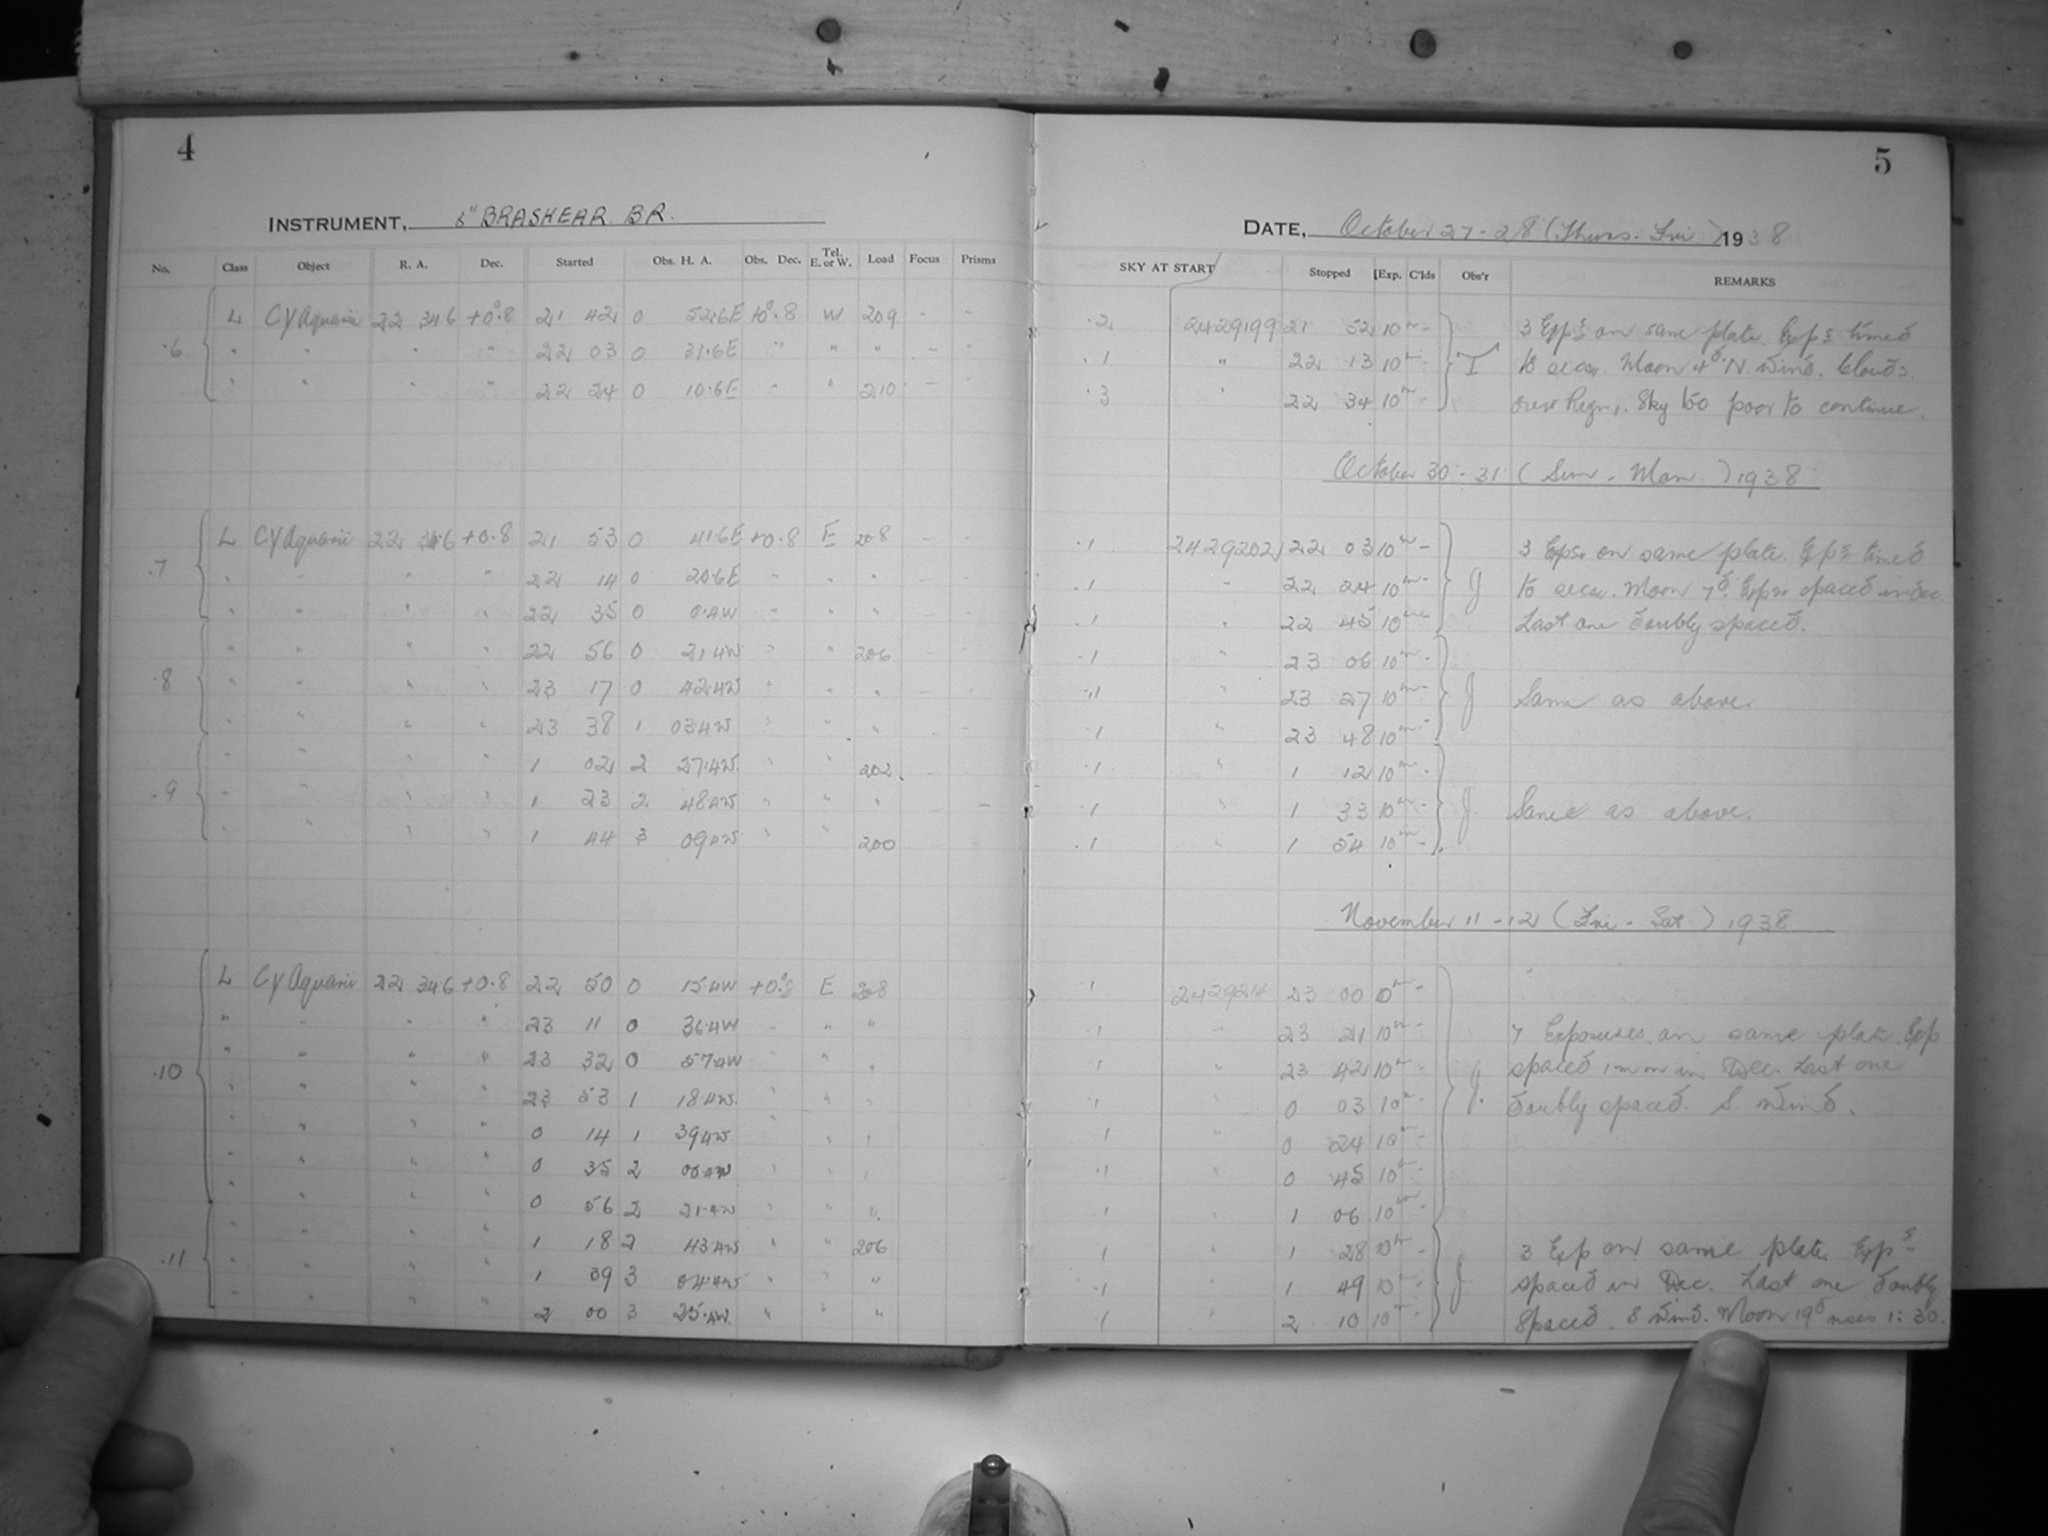 4
INSTRUMENT, 6" BRASHEAR BR.
No. Class Object R. A. Dec. Started Obs. H. A. Obs. Dec. Tel. E. or W. Load Focus Prisms
.6 L CY Aquarii 22 34.6 +0°.8 21 42 0 52.6E +0°.8 W 209 - -
" " " " 22 03 0 31.6E " " " - -
" " " " 22 24 0 10.6E " " 210 - -
.7 L CY Aquarii 22 34.6 +0.8 21 53 0 41.6E +0.8 E 208 - -
" " " " 22 14 0 20.6E " " " - -
" " " " 22 35 0 0.4W " " " - -
" " " " 22 56 0 21.4W " " 206 - -
.8 " " " " 23 17 0 42.4W " " " - -
" " " " 23 38 1 03.4W " " " - -
" " " " 1 02 2 27.4W " " 202 - -
.9 " " " " 1 23 2 48.4W " " " - -
" " " " 1 44 3 09.4W " " 200
L CY Aquarii 22 34.6 +0.8 22 50 0 15.4W +0°.8 E 208
" " " " 23 11 0 36.4W " " "
.10 " " " " 23 32 0 57.4W " " "
" " " " 23 53 1 18.4W " " "
" " " " 0 14 1 39.4W " " "
" " " " 0 35 2 00.4W " " "
" " " " 0 56 2 21.4W " " "
.11 " " " " 1 18 2 43.4W " " 206
" " " " 1 39 3 04.4W " " "
" " " " 2 00 3 25.4W " " "
5
DATE, October 27-28 (Thurs. Fri) 1938
SKY AT START Stopped Exp. C'lds Obs'r REMARKS
.2 2429199 21 52 10m - 3 Exps on same plate. Exps timed
.1 " 22 13 10m - to secs. Moon 4d. N. wind. Clouds
.3 " 22 34 10m - over Regn. Sky too poor to continue.
October 30-31 (Sun - Mon.) 1938
.1 2429202 22 03 10m - 3 Exps on same plate. Exps timed
.1 " 22 24 10m - J to secs. Moon 7d. Exps spaced in Dec
.1 " 22 45 10m - Last one doubly spaced.
.1 " 23 06 10m -
.1 " 23 27 10m - J Same as above.
.1 " 23 48 10m -
.1 " 1 12 10m -
.1 " 1 33 10m - J. Same as above.
.1 " 1 54 10m -
November 11-12 (Fri - Sat.) 1938
.1 2429214 23 00 10m -
.1 " 23 21 10m - 7 Exposures on same plate. Exp
.1 " 23 42 10m - J. spaced 1 mm in Dec. Last one
.1 " 0 03 10m - doubly spaced. S. wind.
.1 " 0 24 10m -
.1 " 0 45 10m -
.1 " 1 06 10m -
.1 " 1 28 10m - 3 Exp on same plate. Exps
.1 " 1 49 10m - J. spaced in Dec. Last one doubly
.1 " 2 10 10m - spaced. S wind. Moon 19d rises 1:30.